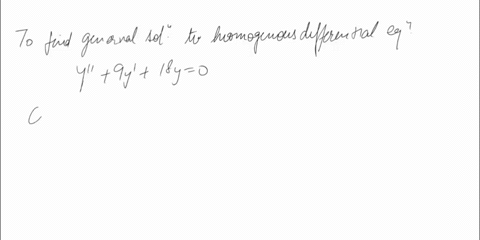 To find general solⁿ to homogenous differential eqⁿ
y'' + 9y' + 18y = 0
C